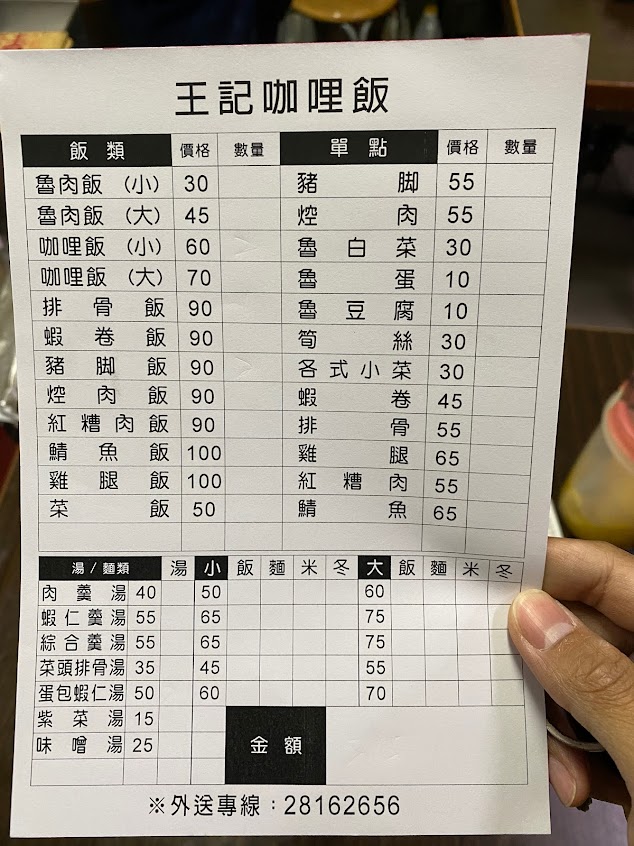 王記咖哩飯
飯類 價格 數量 單點 價格 數量
魯肉飯（小） 30 豬腳 55
魯肉飯（大） 45 焢肉 55
咖哩飯（小） 60 魯白菜 30
咖哩飯（大） 70 魯蛋 10
排骨飯 90 魯豆腐 10
蝦卷飯 90 筍絲 30
豬腳飯 90 各式小菜 30
焢肉飯 90 蝦卷 45
紅糟肉飯 90 排骨 55
鯖魚飯 100 雞腿 65
雞腿飯 100 紅糟肉 55
菜飯 50 鯖魚 65
湯/麵類 湯 小 飯 麵 米 冬 大 飯 麵 米 冬
肉羹湯 40 50 60
蝦仁羹湯 55 65 75
綜合羹湯 55 65 75
菜頭排骨湯 35 45 55
蛋包蝦仁湯 50 60 70
紫菜湯 15
味噌湯 25
金額
※外送專線：28162656